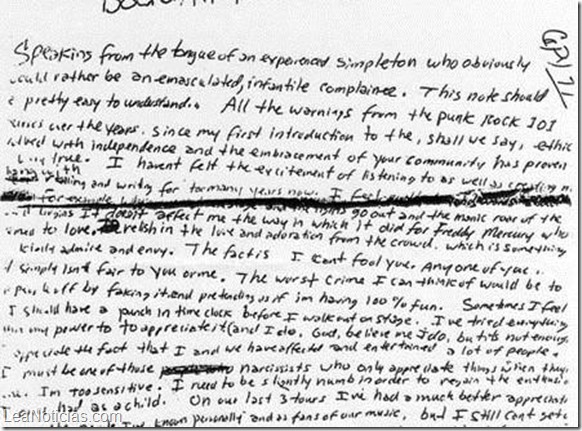 Speaking from the tongue of an experienced simpleton who obviously
would rather be an emasculated, infantile complainee. This note should
pretty easy to understand. All the warnings from the punk rock 101
over the years. Since my first introduction to the, shall we say, ethic
with independence and the embracement of your community has proven
true. I havent felt the excitement of listening to as well as creating
and writing for too many years now. I feel
For example and the lights go out and the manic roar of the
begins It doesnt affect me the way in which it did for Freddy Mercury who
to love, relish in the love and adoration from the crowd. which is something
admire and envy. The fact is I cant fool you. Any one of you.
simply isnt fair to you or me. The worst crime I can think of would be to
off by faking it and pretending as if im having 100% fun. Sometimes I feel
I should have a punch in time clock before I walk out on stage. I've tried everything
my power to to appreciate it (and I do, God, believe me I do, but its not enough
appreciate the fact that I and we have affected and entertained a lot of people.
I must be one of those narcissists who only appreciate things when they
Im too sensitive. I need to be slightly numb in order to regain the enthusiasm
had as a child. On our last 3 tours I've had a much better appreciation
I've known personally and as fans of our music, but I still cant get
GPN/71
LeaNoticias.com